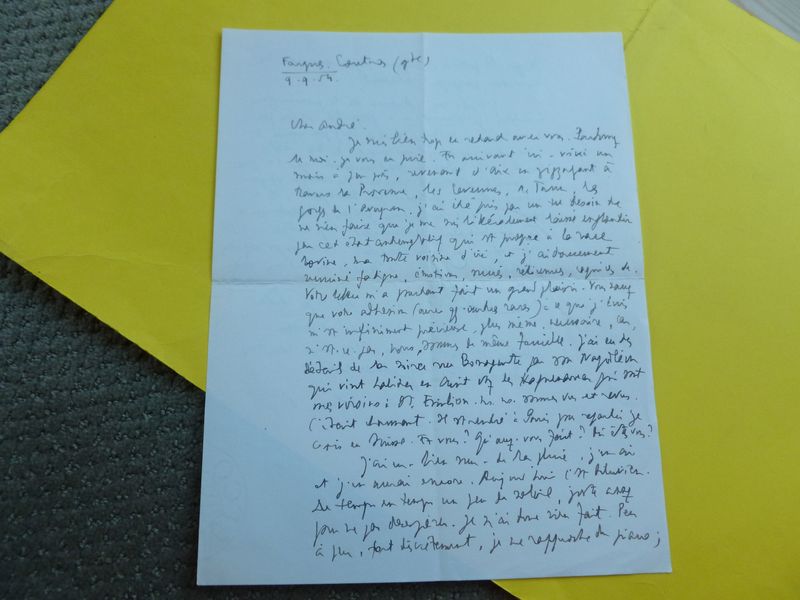 Fargues. (gde)
9.9.54.
Cher André.
Je suis bien trop en retard avec vous. Pardonnez
le moi. je vous en prie. En arrivant ici - voici un
mois à peu près, revenant d'Aix en zigzagant à
travers la Provence, les Cévennes, le Tarn, les
gorges de l'Aveyron, j'ai été pris par un tel besoin de
ne rien faire que je me suis littéralement laissé
par cet état contemplatif qui est propre à la race
bovine, ma toute voisine d'ici, et j'ai doucement
ruminé fatigue, émotions,
Votre lettre m'a pourtant fait un grand plaisir. Vous savez
que votre adhésion (avec qq. autres rares) à ce que j'écris
m'est infiniment précieuse, plus même, nécessaire, car,
n'est-ce pas, nous sommes de même famille. J'ai eu des
détails de la soirée chez Bonaparte par
qui vint en Août chez les qui sont
mes voisins à St. Emilion. ns. ns. sommes vus et revus.
C'était charmant. Il est rentré à Paris pour repartir je
crois en Suisse. Et vous? Qu'avez-vous fait? Où êtes vous?
J'ai vu - bien vu - de la pluie, j'en ai
et j'en aurai encore. Aujourd'hui c'est diluvien.
De temps en temps un peu de soleil, juste assez
pour ne pas désespérer. Je n'ai donc rien fait. Peu
à peu, tout discrètement, je me rapproche du piano;